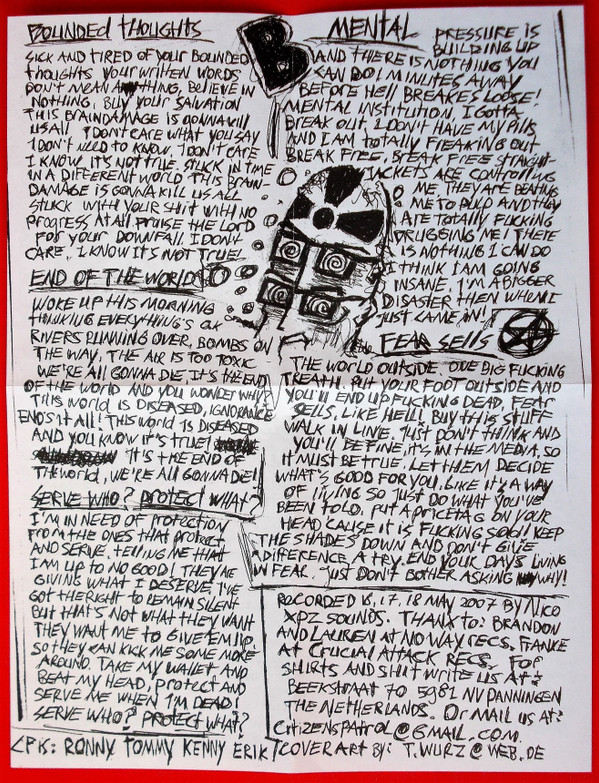 BOUNDED THOUGHTS
SICK AND TIRED OF YOUR BOUNDED
THOUGHTS YOUR WRITTEN WORDS
DON'T MEAN A THING, BELIEVE IN
NOTHING, BUY YOUR SALVATION
THIS BRAINDAMAGE IS GONNA KILL
US ALL, I DON'T CARE WHAT YOU SAY
I DON'T NEED TO KNOW, I DON'T CARE
I KNOW IT'S NOT TRUE, STUCK IN TIME
IN A DIFFERENT WORLD THIS BRAIN-
DAMAGE IS GONNA KILL US ALL
STUCK WITH YOUR SHIT WITH NO
PROGRESS AT ALL PRAISE THE LORD
FOR YOUR DOWNFALL I DON'T
CARE, I KNOW IT'S NOT TRUE!
END OF THE WORLD
WOKE UP THIS MORNING
THINKING EVERYTHING'S OK
RIVERS RUNNING OVER, BOMBS ON
THE WAY, THE AIR IS TOO TOXIC
WE'RE ALL GONNA DIE, IT'S THE END
OF THE WORLD AND YOU WONDER WHY?
THIS WORLD IS DISEASED, IGNORANCE
ENDS IT ALL! THIS WORLD IS DISEASED
AND YOU KNOW IT'S TRUE!
IT'S THE END OF
THE WORLD, WE'RE ALL GONNA DIE!
SERVE WHO? PROTECT WHAT?
I'M IN NEED OF PROTECTION
FROM THE ONES THAT PROTECT
AND SERVE, TELLING ME THAT
I AM UP TO NO GOOD! THEY'RE
GIVING WHAT I DESERVE, I'VE
GOT THE RIGHT TO REMAIN SILENT
BUT THAT'S NOT WHAT THEY WANT
THEY WANT ME TO GIVE 'EM LIP
SO THEY CAN KICK ME SOME MORE
AROUND. TAKE MY WALLET AND
BEAT MY HEAD, PROTECT AND
SERVE ME WHEN I'M DEAD!
SERVE WHO? PROTECT WHAT?
B
MENTAL
PRESSURE IS
BUILDING UP
AND THERE IS NOTHING YOU
CAN DO! MINUTES AWAY
BEFORE HELL BREAKES LOOSE!
MENTAL INSTITUTION, I GOTTA
BREAK OUT, I DON'T HAVE MY PILLS
AND I AM TOTALLY FREAKING OUT
BREAK FREE, BREAK FREE STRAIGHT-
JACKETS ARE CONTROLLING
ME, THEY ARE BEATING
ME TO PULP AND THEY
ARE TOTALLY FUCKING
DRUGGING ME! THERE
IS NOTHING I CAN DO
I THINK I AM GOING
INSANE, I'M A BIGGER
DISASTER THEN WHEN I
JUST CAME IN!
FEAR SELLS
THE WORLD OUTSIDE, ONE BIG FUCKING
TREATH, PUT YOUR FOOT OUTSIDE AND
YOU'LL END UP FUCKING DEAD, FEAR
SELLS, LIKE HELL! BUY THIS STUFF
WALK IN LINE, JUST DON'T THINK AND
YOU'LL BE FINE, IT'S IN THE MEDIA, SO
IT MUST BE TRUE, LET THEM DECIDE
WHAT'S GOOD FOR YOU, LIKE IT'S A WAY
OF LIVING SO JUST DO WHAT YOU'VE
BEEN TOLD, PUT A PRICETAG ON YOUR
HEAD 'CAUSE IT IS FUCKING SOLD! KEEP
THE SHADES DOWN AND DON'T GIVE
A DIFFERENCE A TRY, END YOUR DAYS LIVING
IN FEAR, JUST DON'T BOTHER ASKING WHY!
RECORDED 16, 17, 18 MAY 2007 BY NICO
XPZ SOUNDS. THANX TO: BRANDON
AND LAUREN AT NO WAY RECS, FRANKE
AT CRUCIAL ATTACK RECS. FOR
SHIRTS AND SHIT WRITE US AT:
BEEKSTRAAT 70 5981 NV PANNINGEN
THE NETHERLANDS. OR MAIL US AT:
CITIZENSPATROL@GMAIL.COM.
CP IS: RONNY TOMMY KENNY ERIK
COVERART BY: T.WURZ@WEB.DE